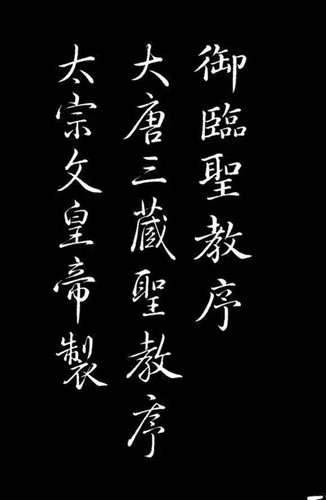 御臨聖教序
大唐三藏聖教序
太宗文皇帝製